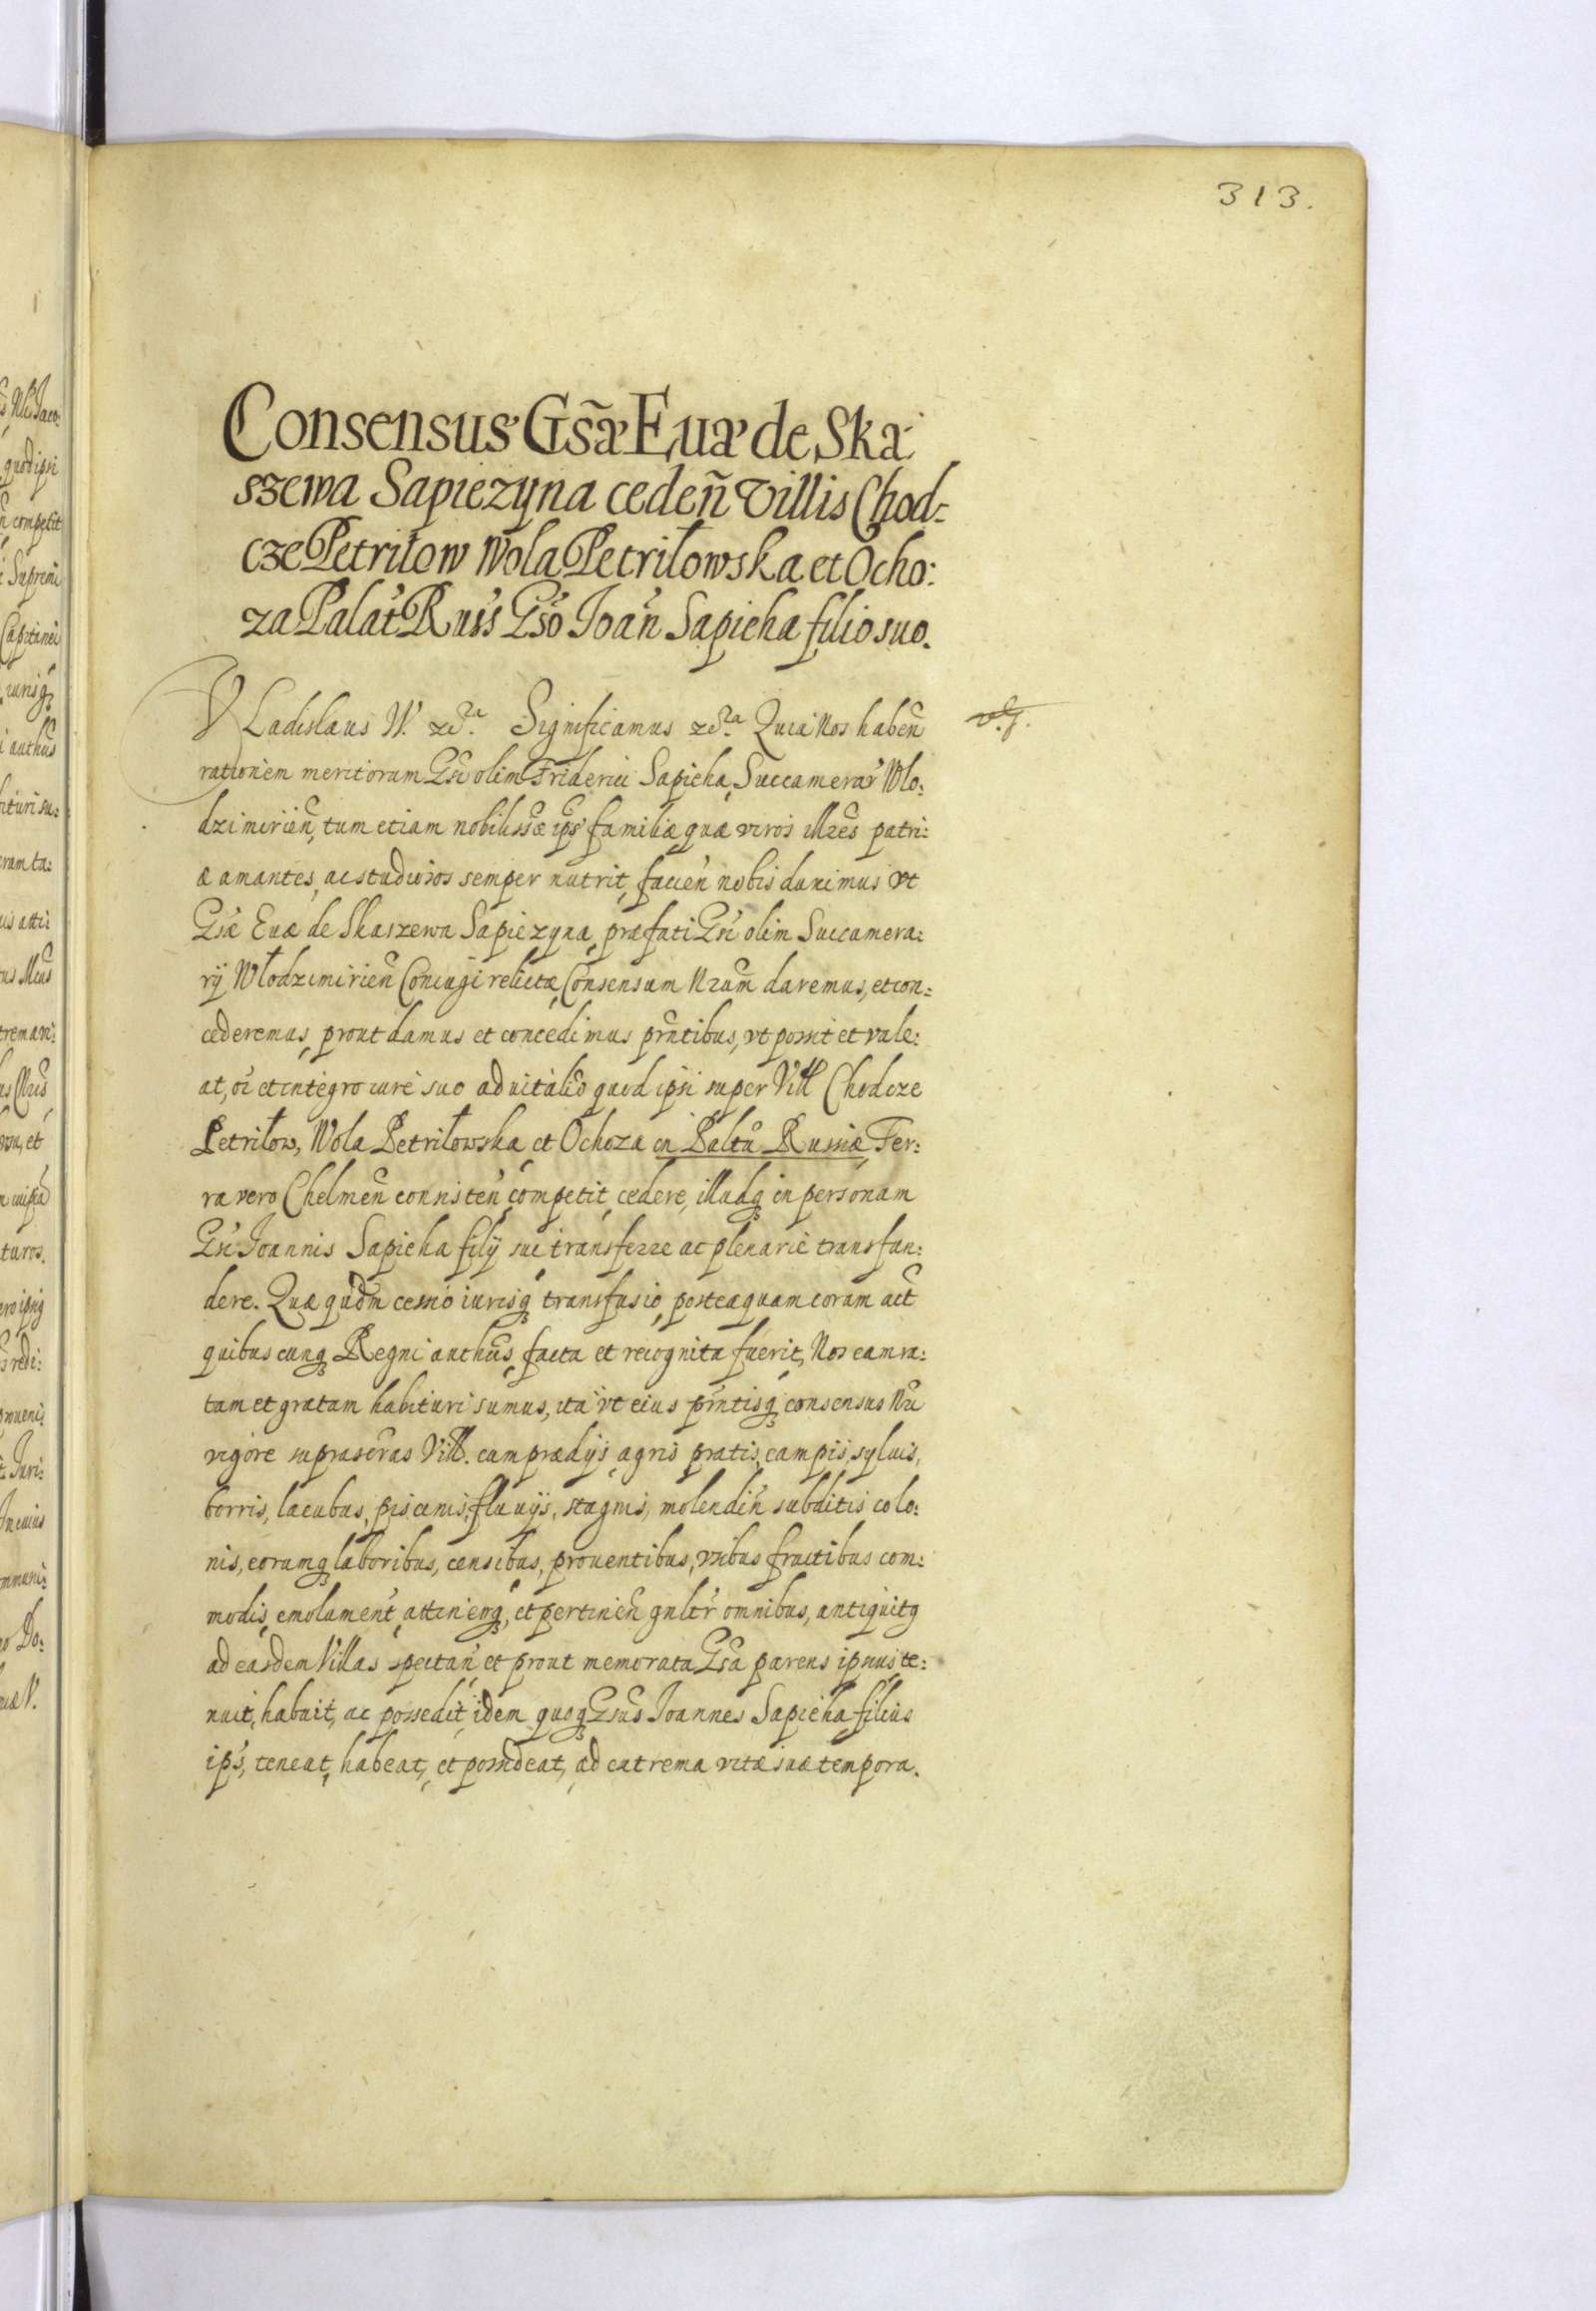 313.
Consensus Gsæ Euæ de Ska:
szewa Sapiezyna cedeñ Villis Chod:
cze Petriłow Wola Petriłowska et Ocho:
za Palat Russ Gso Ioan Sapieha filio suo.
VLadislaus IV. &ca. Significamus &ca. Quia Nos haben
rationem meritorum Gsi olim Friderici Sapieha, Succamerar Wlo:
dzimirien, tum etiam nobilissæ ips familiæ quæ viros illres patri:
æ amantes, ac studiosos semper nutrit, facien nobis duximus vt
Gsæ Euæ de Skaszewa Sapiezyna, præfati Gsi olim Succamera:
rij Włodzimirien Coniugi relictæ Consensum Nrum daremus, et con:
cederemus, prout damus et concedimus pñtibus, vt possit et vale:
at, oi et integro iure suo aduitalio quod ipsi super Vill Chodcze
Petriłow, Wola Petriłowska et Ochoza in Paltu Russiæ Ter:
ra vero Chelmen consisten competit, cedere, illudq in personam
Gsi Ioannis Sapieha filij sui transferre ac plenarie transfun:
dere. Quæ quidm cessio iurisq transfusio, posteaquam coram act
quibuscunq Regni authcis facta et recognita fuerit, Nos eam ra:
tam et gratam habituri sumus, ita vt eius pñtisq consensus Nri
vigore suprascras Vill. cum prædijs, agris pratis, campis, syluis,
borris, lacubus, piscinis, fluuijs, stagnis, molendin subditis colo:
nis, eorumq laboribus, censibus, prouentibus, vsibus fructibus com:
modis, emolument, attinenq, et pertinen gnltr omnibus, antiquitq
ad easdem Villas spectan et prout memorata Gsa parens ipsius te:
nuit, habuit, ac possedit, idem quoq Gsus Ioannes Sapieha filius
ips, teneat, habeat, et possideat, ad extrema vitæ suæ tempora.